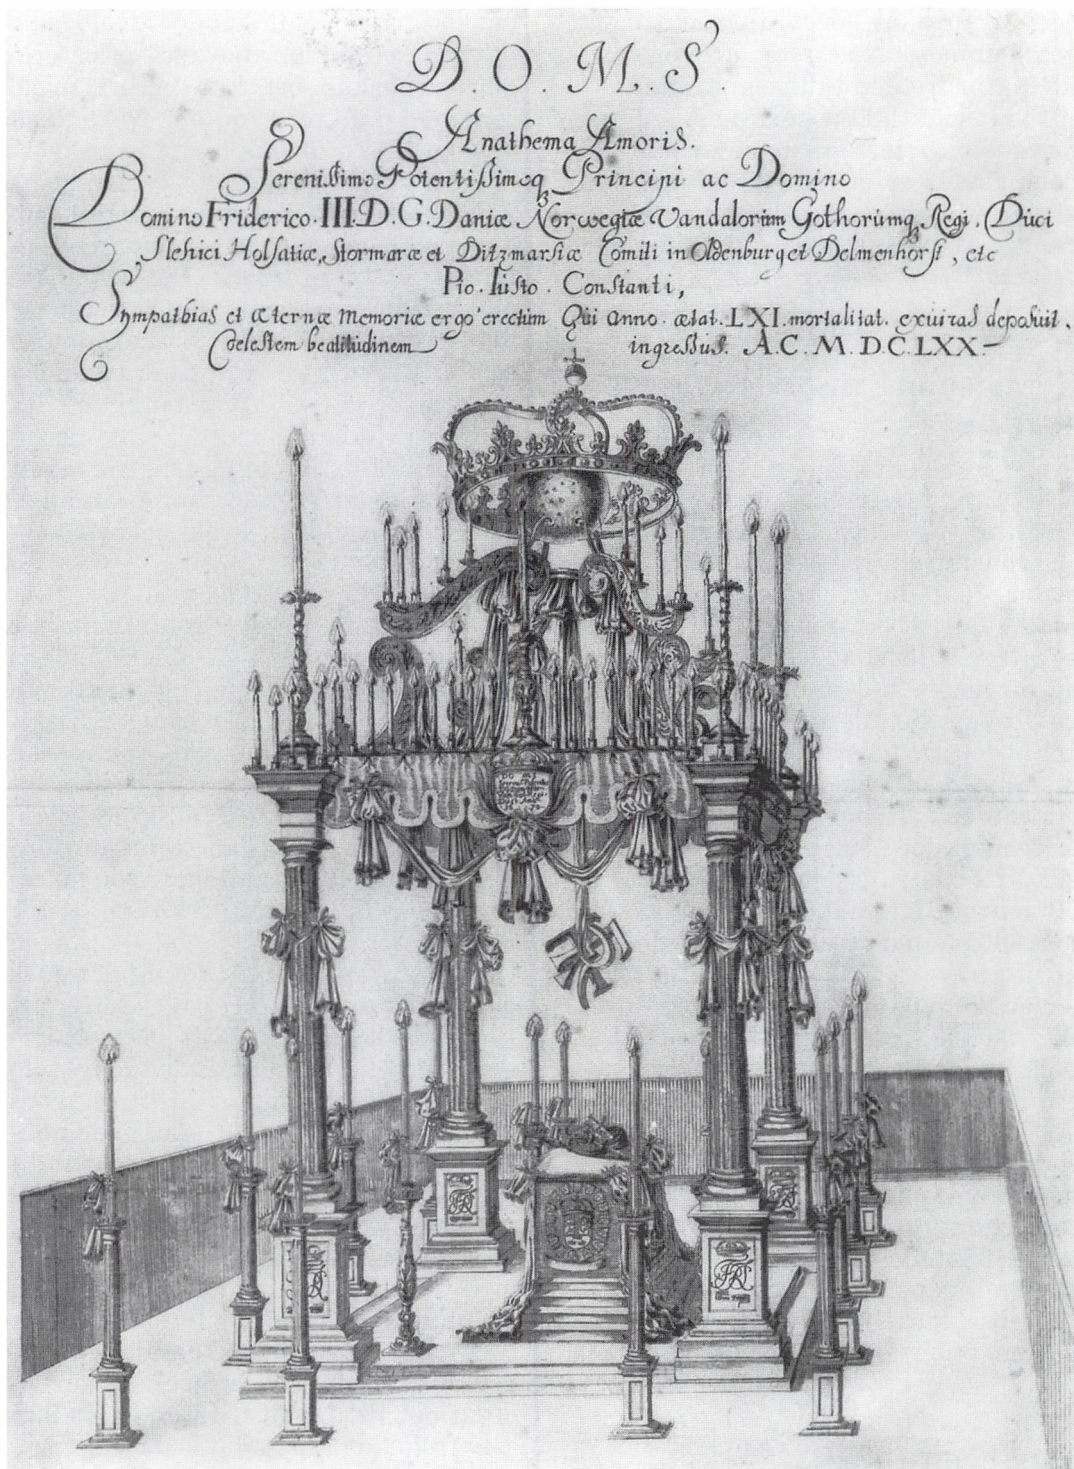 D. O. M. S.
Anathema Amoris.
Serenissimo Potentissimoq Principi ac Domino
Domino Friderico. III. D. G. Daniæ, Norwegiæ Vandalorùm Gothorùmq, Regi, Dùci
Slesùici Holsatiæ, Stormaræ et Ditzmarsiæ Comiti in Oldenburg et Delmenhorst, etc
Pio. Iùsto. Constanti,
Sympathias et æternæ memoriæ ergo erectùm Qùi anno. ætat. LXI. mortalitat. exuùias deposùit.
Cœlestem beatitùdinem ingressùs. A. C. M. D. C. LXX.